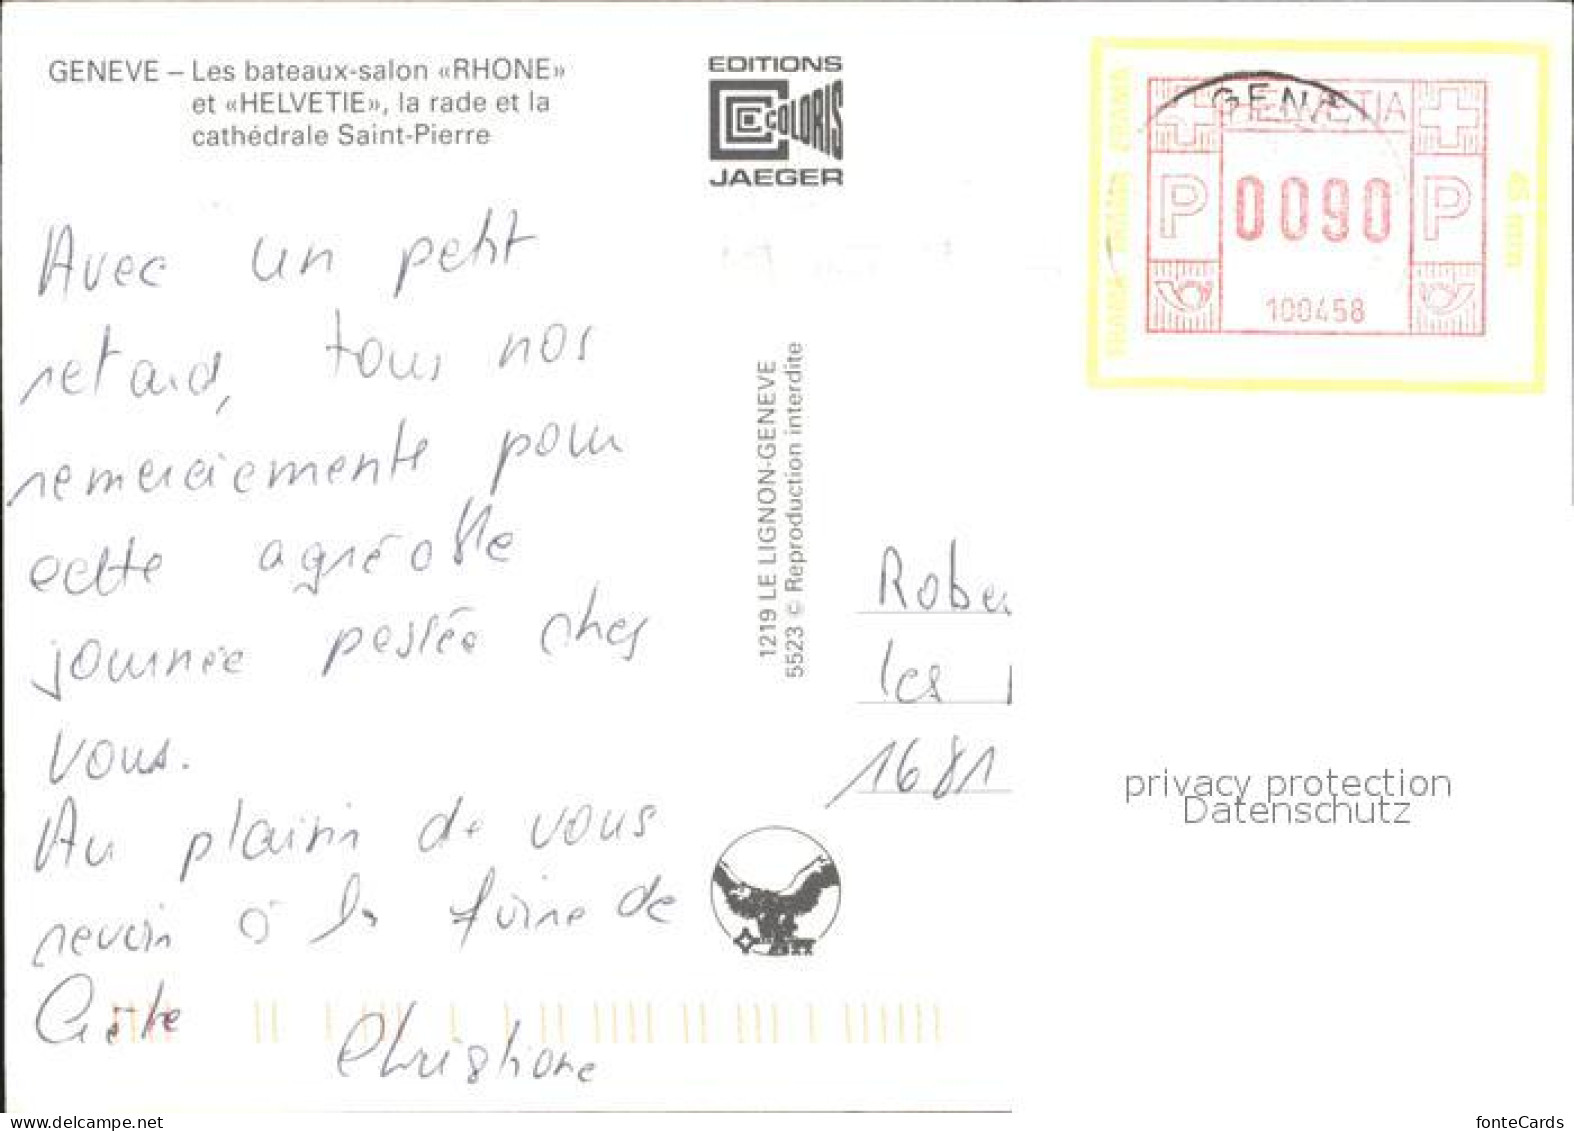 GENEVE – Les bateaux-salon «RHONE»
et «HELVETIE», la rade et la
cathédrale Saint-Pierre
EDITIONS
COLORIS
JAEGER
GENE
HELVETIA
P 0090 P
100458
45 mm
Avec un petit
retard, tous nos
remerciements pour
cette agréable
journée passée chez
vous.
Au plaisir de vous
revoir à la foire de
Christiane
1219 LE LIGNON-GENEVE
5523 © Reproduction interdite
Rober
les
1681
privacy protection
Datenschutz
fonteCards